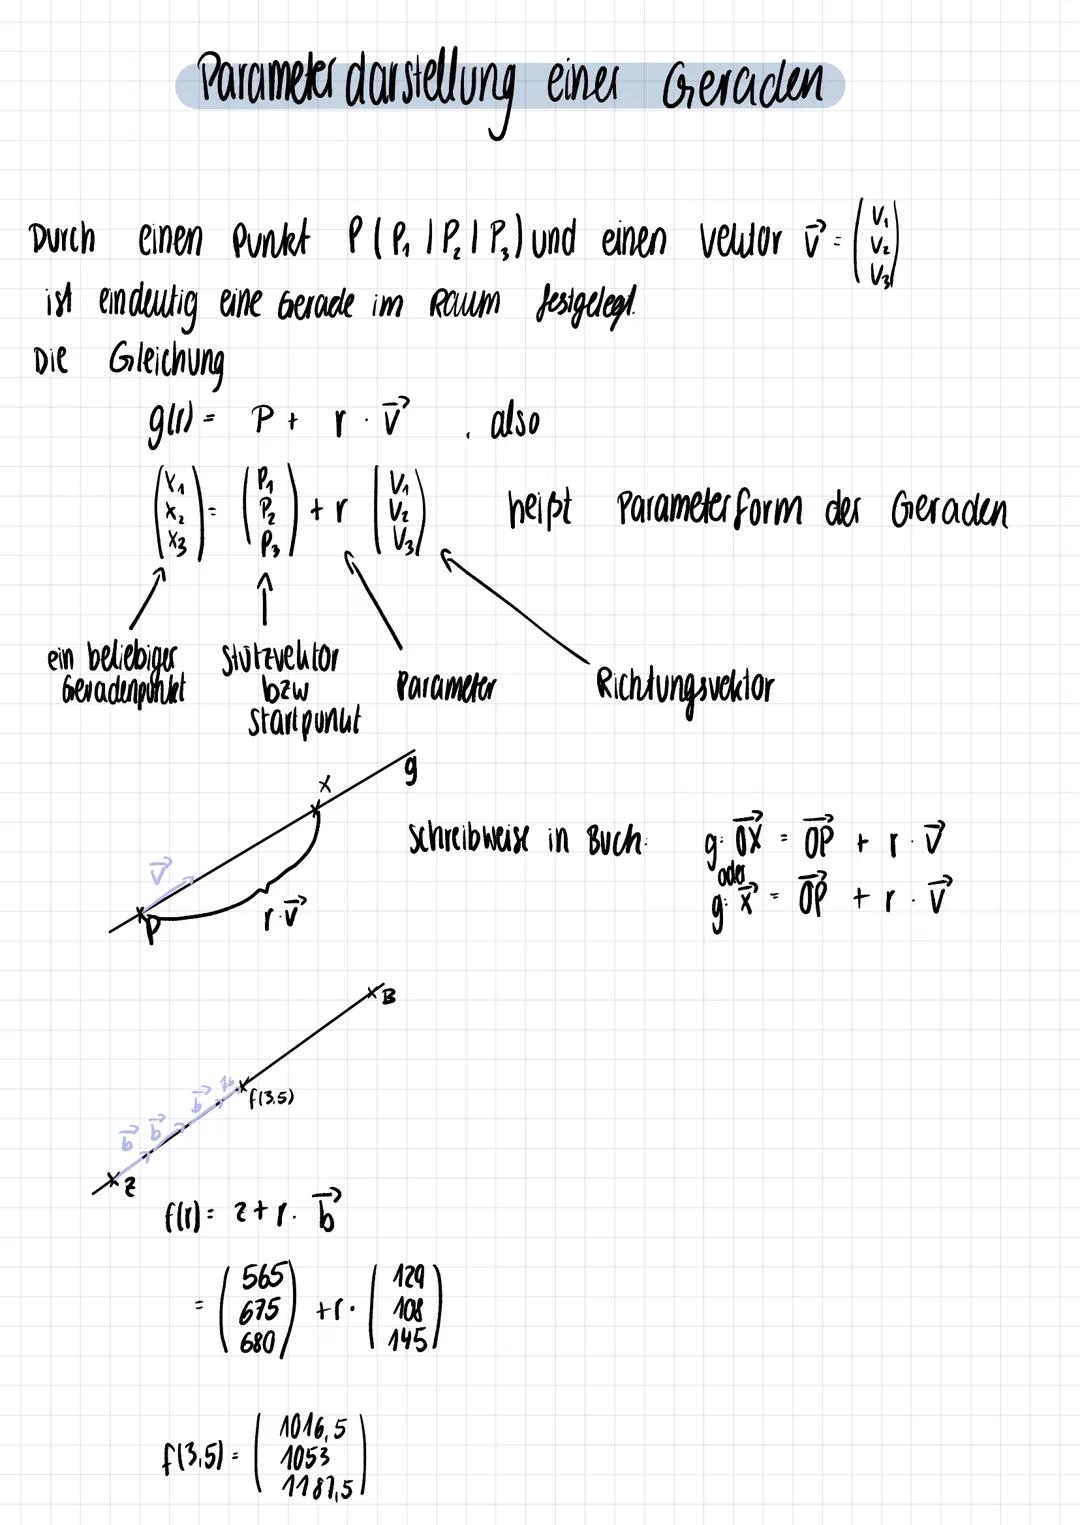 Parameterdarstellung einer Geraden
Durch einen Punkt P(P₁|P₂|P₃) und einen Vektor v⃗ = (v₁ v₂ v₃)
ist eindeutig eine Gerade im Raum festgelegt.
Die Gleichung
g(r) = P + r · v⃗ , also
(x₁ x₂ x₃) = (P₁ P₂ P₃) + r (v₁ v₂ v₃) heißt Parameterform der Geraden
ein beliebiger Geradenpunkt
Stützvektor bzw Startpunkt
Parameter
Richtungsvektor
x
g
v⃗
P
r · v⃗
Schreibweise in Buch: g: OX⃗ = OP⃗ + r · v⃗
oder
g: x⃗ = OP⃗ + r · v⃗
B
f(3,5)
b⃗ b⃗ b⃗
z
f(r) = z + r · b⃗
= (565 675 680) + r · (129 108 145)
f(3,5) = (1016,5 1053 1187,5)